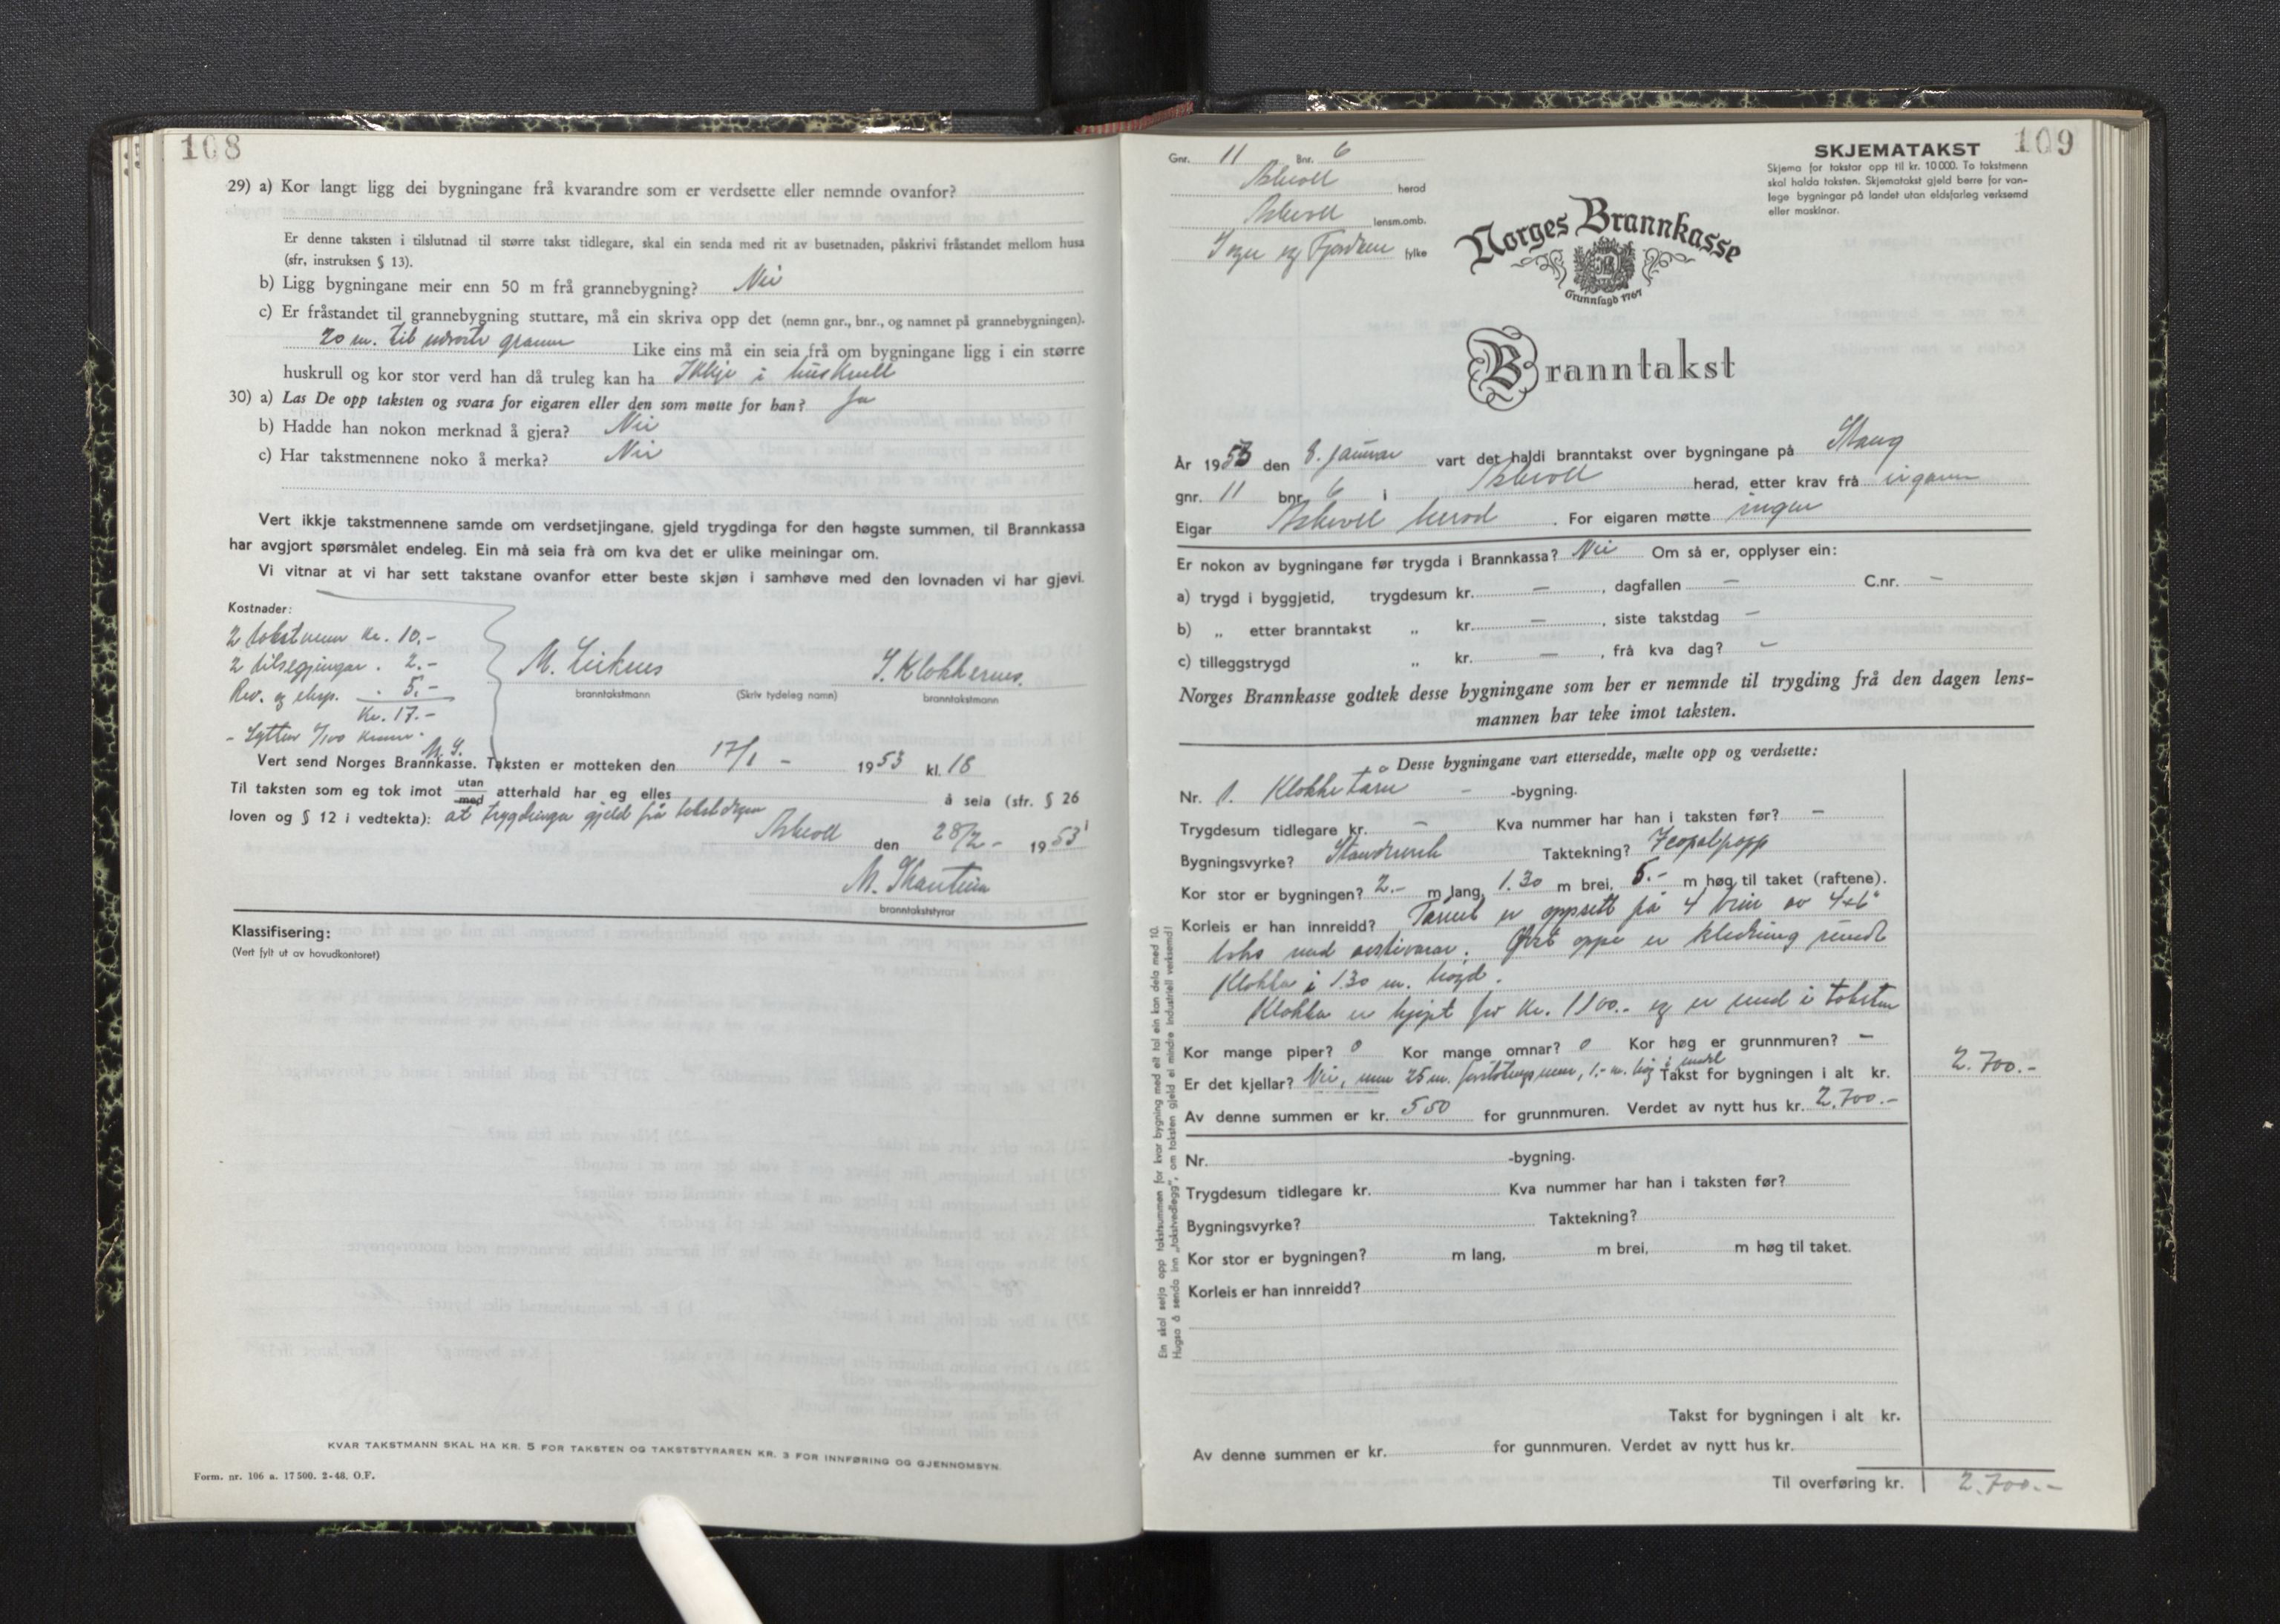 108
29) a) Kor langt ligg dei bygningane frå kvarandre som er verdsette eller nemnde ovanfor?
Er denne taksten i tilslutnad til større takst tidlegare, skal ein senda med rit av busetnaden, påskrivi fråstandet mellom husa
(sfr, instruksen § 13).
b) Ligg bygningane meir enn 50 m frå grannebygning? Nei
c) Er fråstandet til grannebygning stuttare, må ein skriva opp det (nemn gnr., bnr., og namnet på grannebygningen).
20 m. til næraste grann Like eins må ein seia frå om bygningane ligg i ein større
huskrull og kor stor verd han då truleg kan ha Ikkje i huskrull
30) a) Las De opp taksten og svara for eigaren eller den som møtte for han? Ja
b) Hadde han nokon merknad å gjera? Nei
c) Har takstmennene noko å merka? Nei
Vert ikkje takstmennene samde om verdsetjingane, gjeld trygdinga for den høgste summen, til Brannkassa
har avgjort spørsmålet endeleg. Ein må seia frå om kva det er ulike meiningar om.
Vi vitnar at vi har sett takstane ovanfor etter beste skjøn i samhøve med den lovnaden vi har gjevi.
Kostnader:
2 takstmenn kr. 10.-
2 tilsegjingar . 2.-
. 5.-
Kr. 17.-
M. Leiknes
S. Klokkernes.
branntakstmann (Skriv tydeleg namn) branntakstmann
M. S.
Vert send Norges Brannkasse. Taksten er motteken den 17/1 - 1953 kl. 18
Til taksten som eg tok imot utan med atterhald har eg elles å seia (sfr. § 26
loven og § 12 i vedtekta): at trygdinga gjeld frå takstdagen
Askvoll den 28/2 - 1953
branntakststyrar
Klassifisering:
(Vert fylt ut av hovudkontoret)
KVAR TAKSTMANN SKAL HA KR. 5 FOR TAKSTEN OG TAKSTSTYRAREN KR. 3 FOR INNFØRING OG GJENNOMSYN.
Form. nr. 106 a. 17 500. 2-48. O.F.
109
Gnr. 11 Bnr. 6
Askvoll herad
Askvoll lensm.omb.
Sogn og Fjordane fylke
SKJEMATAKST
Skjema for takstar opp til kr. 10 000. To takstmenn
skal halda taksten. Skjematakst gjeld berre for van-
lege bygningar på landet utan eldsfarleg verksemd
eller maskinar.
Norges Brannkasse
Grunnlagd 1767
Branntakst
År 1953 den 8. januar vart det haldi branntakst over bygningane på Staug
gnr. 11 bnr. 6 i Askvoll herad, etter krav frå eigaren
Eigar Askvoll herad . For eigaren møtte ingen
Er nokon av bygningane før trygda i Brannkassa? Nei Om så er, opplyser ein:
a) trygd i byggjetid, trygdesum kr. — , dagfallen — C.nr. —
b) „ etter branntakst „ kr. — , siste takstdag —
c) tilleggstrygd „ kr. — , frå kva dag? —
Norges Brannkasse godtek desse bygningane som her er nemnde til trygding frå den dagen lens-
mannen har teke imot taksten.
Desse bygningane vart ettersedde, mælte opp og verdsette:
Nr. 1. Klokketårn - -bygning.
Trygdesum tidlegare kr. — Kva nummer har han i taksten før? —
Bygningsvyrke? Taktekning?
Kor stor er bygningen? 2.- m lang, 1.30 m brei, 5.- m høg til taket (raftene).
Korleis er han innreidd? Tårnet er oppsett på 4 bein av 4x6"
Øvst oppe er kledning rundt
Klokka i 1.30 m. høgd.
Klokka er kjøpt for kr. 1100.- og er med i taksten
Kor mange piper? 0 Kor mange omnar? 0 Kor høg er grunnmuren? —
Er det kjellar? Nei, men 25 m. forstøtningsmur, 1.- m. høg i medel Takst for bygningen i alt kr. 2.700.-
Av denne summen er kr. 550 for grunnmuren. Verdet av nytt hus kr. 2.700.-
Nr. -bygning.
Trygdesum tidlegare kr. Kva nummer har han i taksten før?
Bygningsvyrke? Taktekning?
Kor stor er bygningen? m lang, m brei, m høg til taket.
Korleis er han innreidd?
Takst for bygningen i alt kr.
Av denne summen er kr. for gunnmuren. Verdet av nytt hus kr.
Til overføring kr. 2.700.-
Ein skal setja opp takstsummen for kvar bygning med eit tal ein kan dela med 10.
Hugsa å senda inn „takstvedlegg", om taksten gjeld ei mindre industriell verksemd!